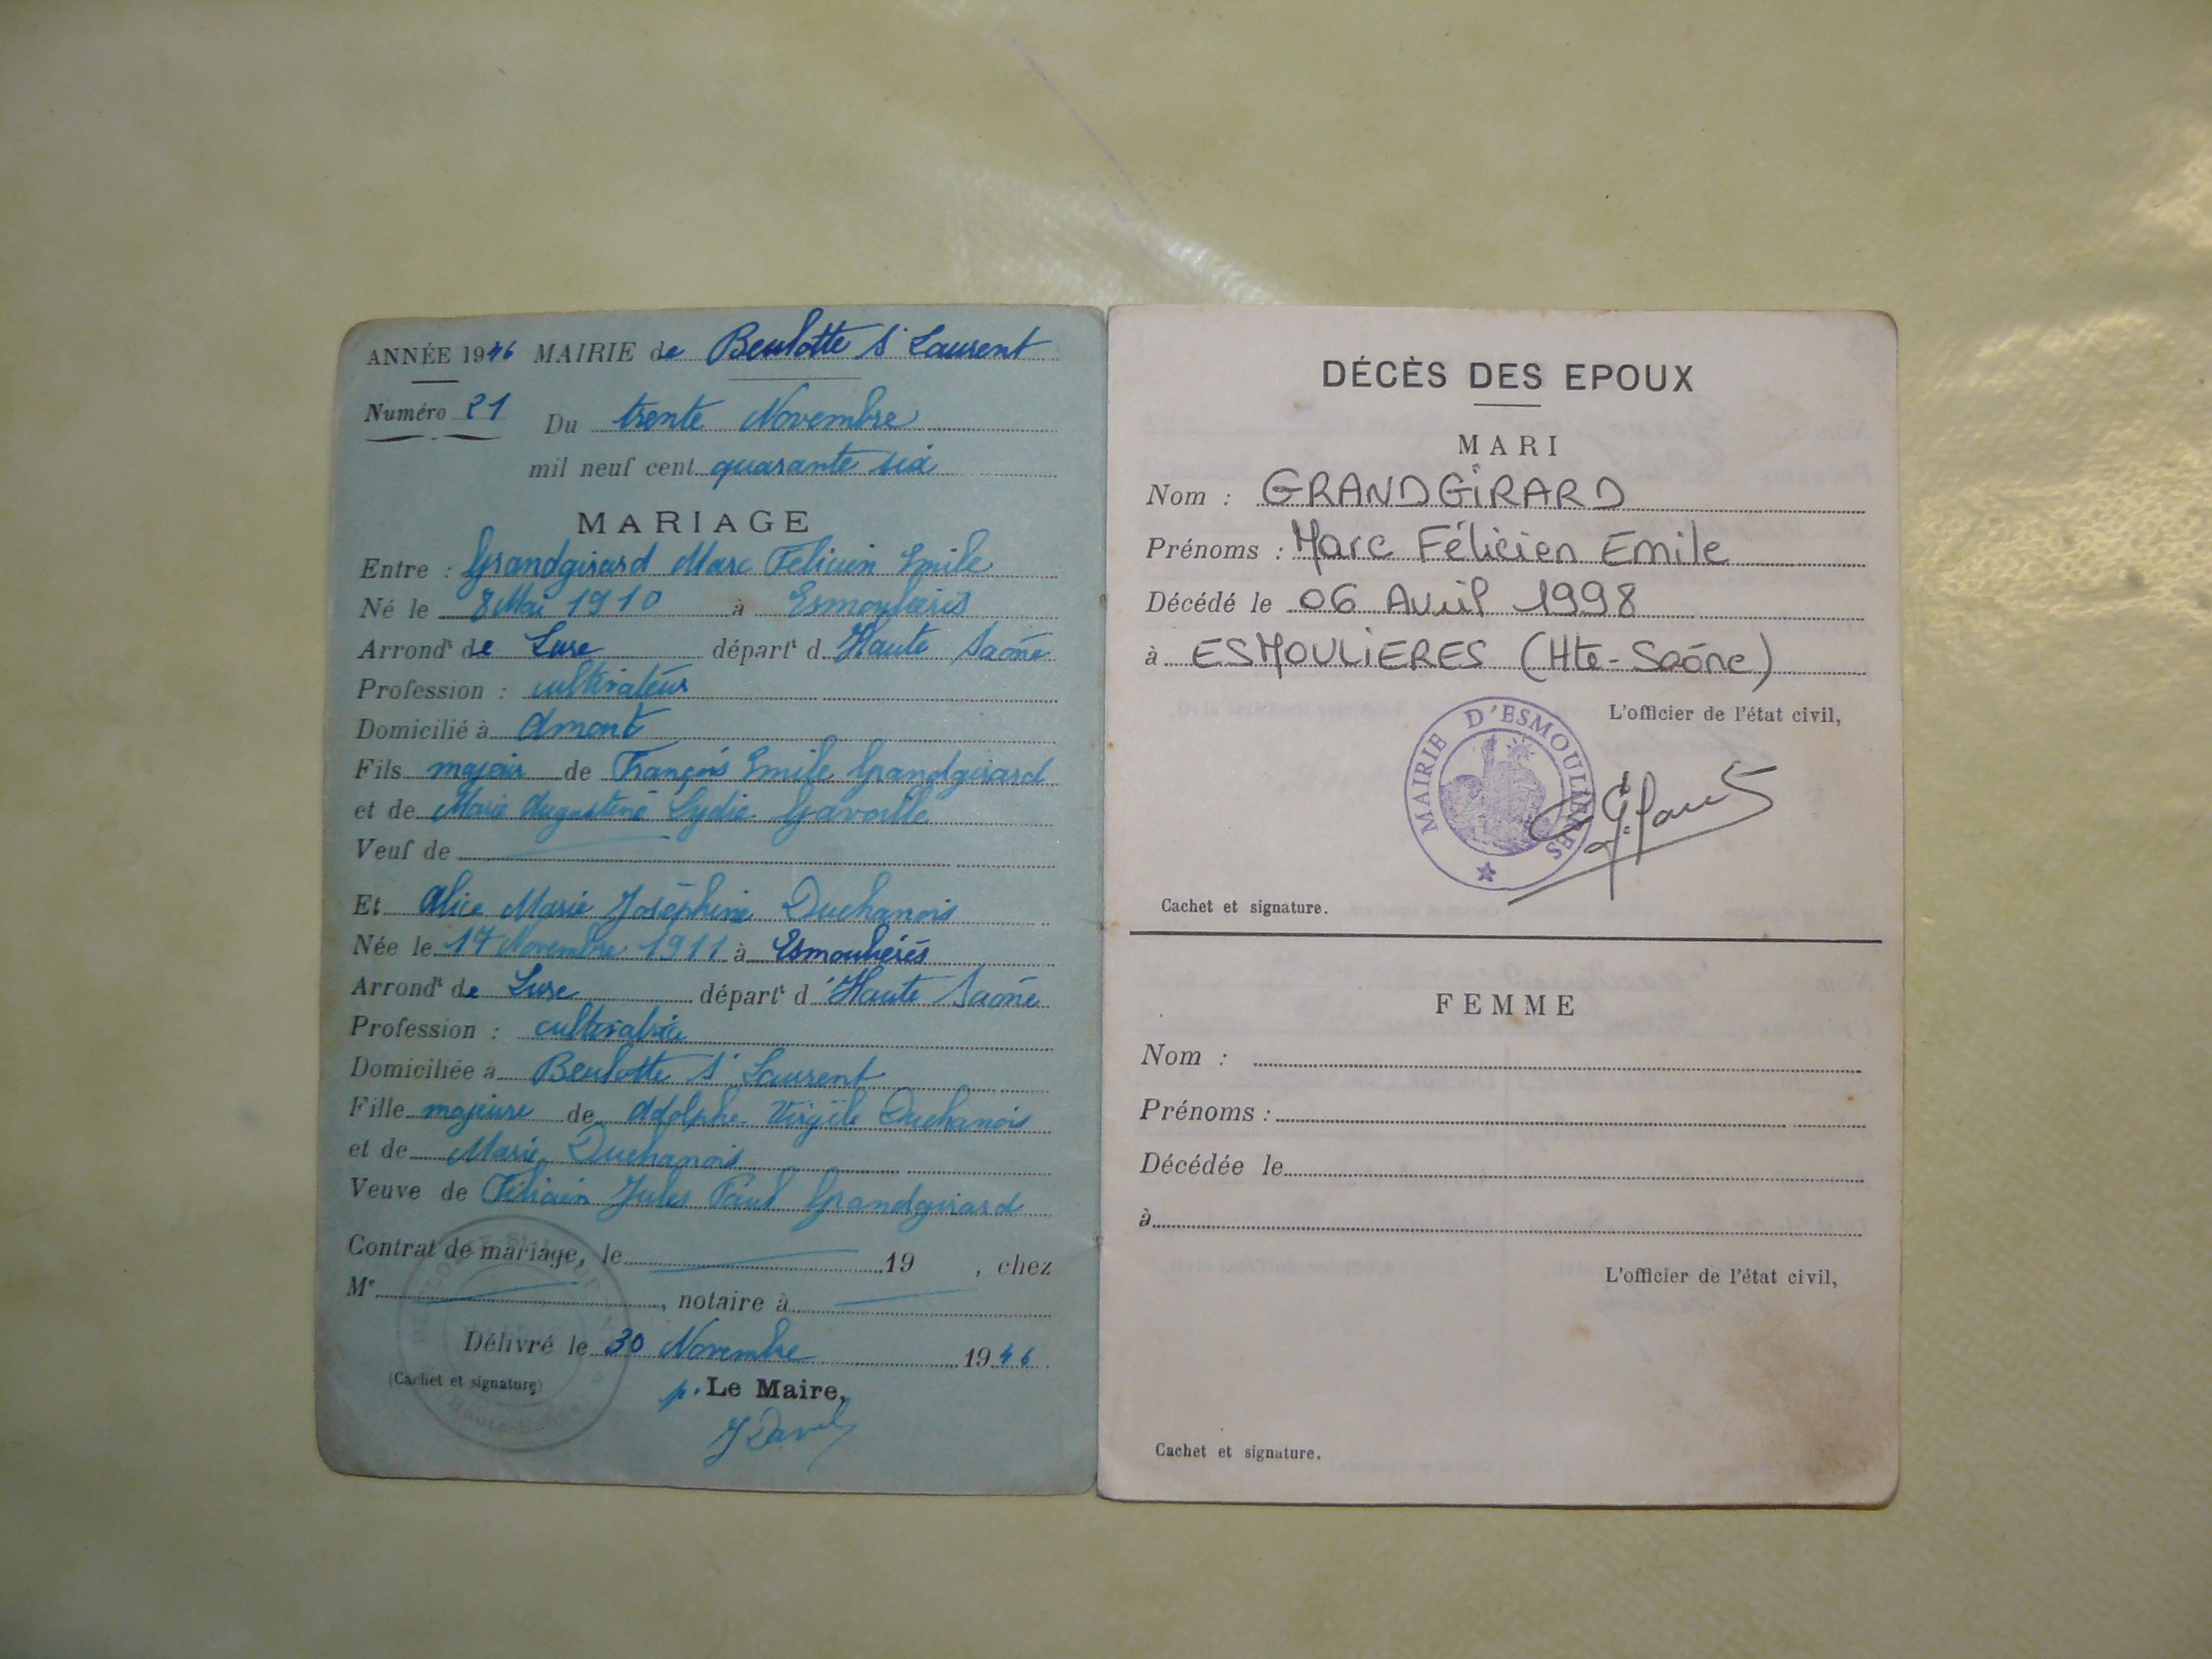 ANNÉE 1946 MAIRIE de Beulotte St Laurent
Numéro 21
Du trente Novembre
mil neuf cent quarante six
MARIAGE
Entre : Grandgirard Marc Felicien Emile
Né le 8 Mai 1910 à Esmoulières
Arrondt de Lure départt d Haute Saône
Profession : cultivateur
Domicilié à Amont
Fils majeur de François Emile Grandgirard
et de Marie Augustine Lydie Gavoille
Veuf de
Et Alice Marie Joséphine Duchanois
Née le 17 Novembre 1911 à Esmoulières
Arrondt de Lure départt d'Haute Saône
Profession : cultivatrice
Domiciliée à Beulotte St Laurent
Fille majeure de Adolphe Virgile Duchanois
et de Marie Duchanois
Veuve de Félicien Jules Paul Grandgirard
Contrat de mariage, le 19 , chez
Me , notaire à
Délivré le 30 Novembre 1946.
(Cachet et signature)
p. Le Maire,
DÉCÈS DES EPOUX
MARI
Nom : GRANDGIRARD
Prénoms : Marc Félicien Emile
Décédé le 06 Avril 1998
à ESMOULIERES (Hte-Saône)
L'officier de l'état civil,
MAIRIE D'ESMOULIERES
Cachet et signature.
FEMME
Nom :
Prénoms :
Décédée le
à
L'officier de l'état civil,
Cachet et signature.